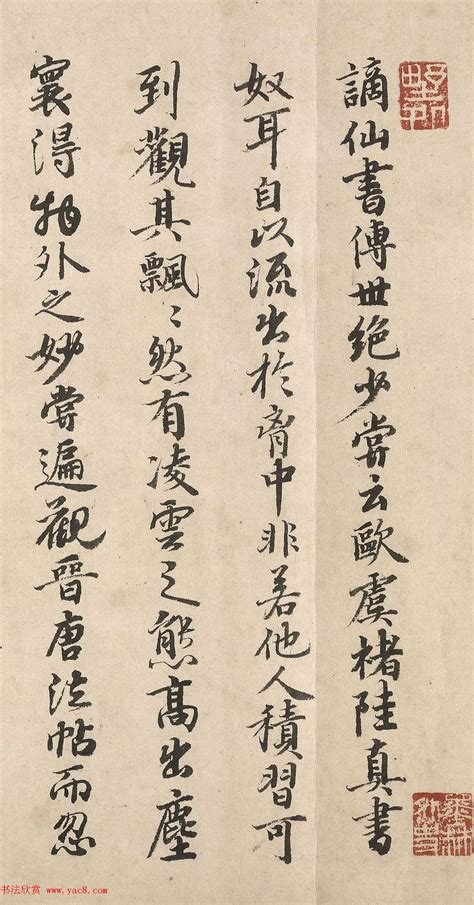 謫仙書傳世絶少嘗云歐虞褚陸真書
奴耳自以流出於胷中非若他人積習可
到觀其飄〻然有凌雲之態高出塵
寰得物外之妙嘗遍觀晉唐法帖而忽
书法欣赏 www.yac8.com